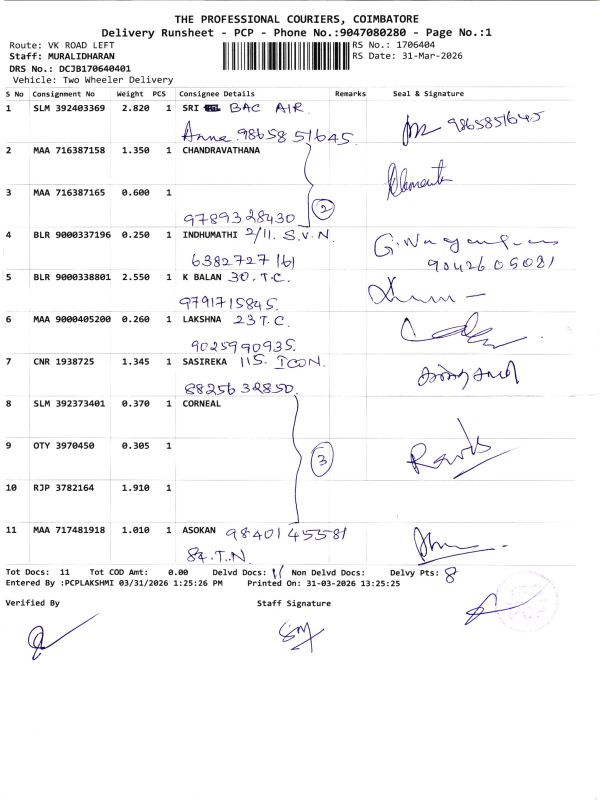 THE PROFESSIONAL COURIERS, COIMBATORE
Delivery Runsheet - PCP - Phone No.:9047080280 - Page No.:1
Route: VK ROAD LEFT RS No.: 1706404
Staff: MURALIDHARAN RS Date: 31-Mar-2026
DRS No.: DCJB170640401
Vehicle: Two Wheeler Delivery
S No Consignment No Weight PCS Consignee Details Remarks Seal & Signature
1 SLM 392403369 2.820 1 SRI BAC AIR.
Anna 9865851645. 9865851645
2 MAA 716387158 1.350 1 CHANDRAVATHANA
3 MAA 716387165 0.600 1
9789328430 2
4 BLR 9000337196 0.250 1 INDHUMATHI 2/11. S.V.N.
6382727161 9042605081
5 BLR 9000338801 2.550 1 K BALAN 30.T.C.
9791715845.
6 MAA 9000405200 0.260 1 LAKSHNA 23 T.C.
9025990935.
7 CNR 1938725 1.345 1 SASIREKA 115. ICON.
8825632850.
8 SLM 392373401 0.370 1 CORNEAL
9 OTY 3970450 0.305 1 3
10 RJP 3782164 1.910 1
11 MAA 717481918 1.010 1 ASOKAN 9840145581
84.T.N.
Tot Docs: 11 Tot COD Amt: 0.00 Delvd Docs: 11 Non Delvd Docs: Delvy Pts: 8
Entered By :PCPLAKSHMI 03/31/2026 1:25:26 PM Printed On: 31-03-2026 13:25:25
Verified By Staff Signature